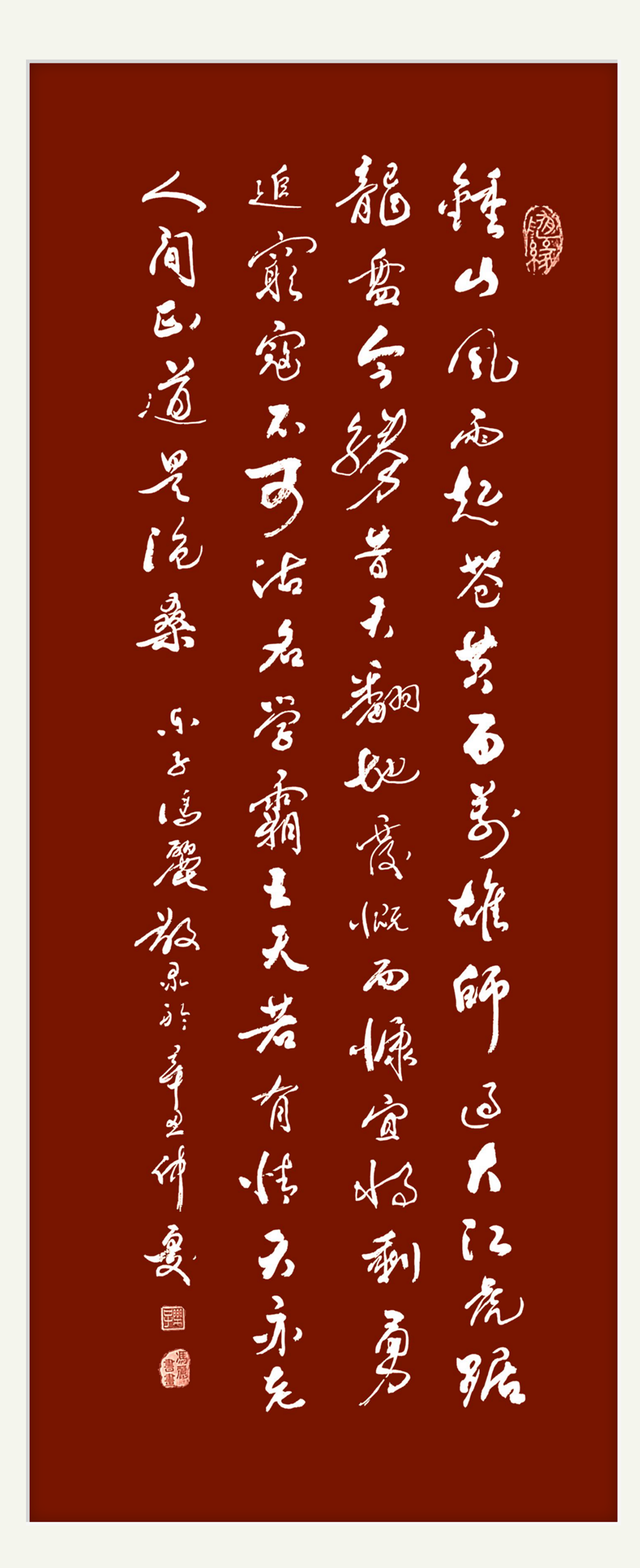 鍾山風雨起苍黄百萬雄師过大江虎踞
龍盘今勝昔天翻地覆慨而慷宜将剩勇
追窮寇不可沽名学霸王天若有情天亦老
人间正道是沧桑
子馮麗敬录於辛丑仲夏
馮麗書畫